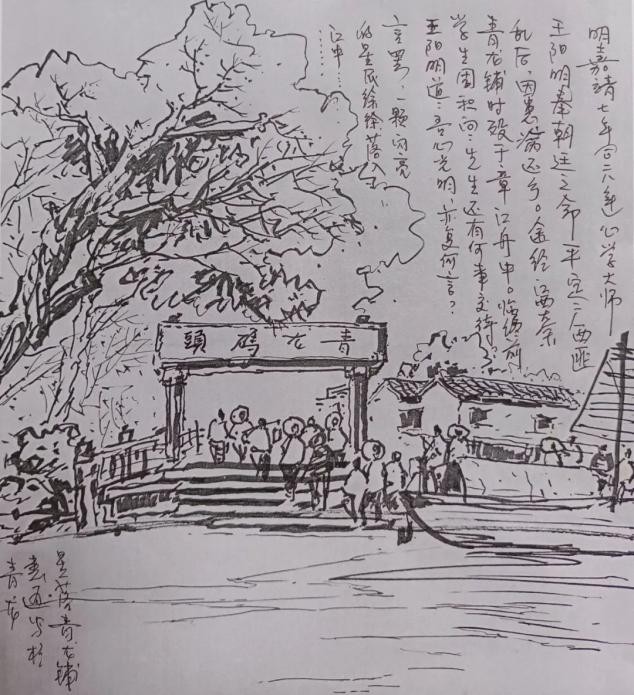 明嘉靖七年 心学大师
王阳明奉朝廷之命平定广西匪
乱后,因患病还乡。途经江西
青龙铺时殁于章江舟中。临终前
学生周积问:先生还有何事交待?
王阳明道:吾心光明,亦复何言?
言罢,一颗闪亮
的星辰徐徐落入
江中……
青龙碼頭
星落青龙铺
写於
青龙